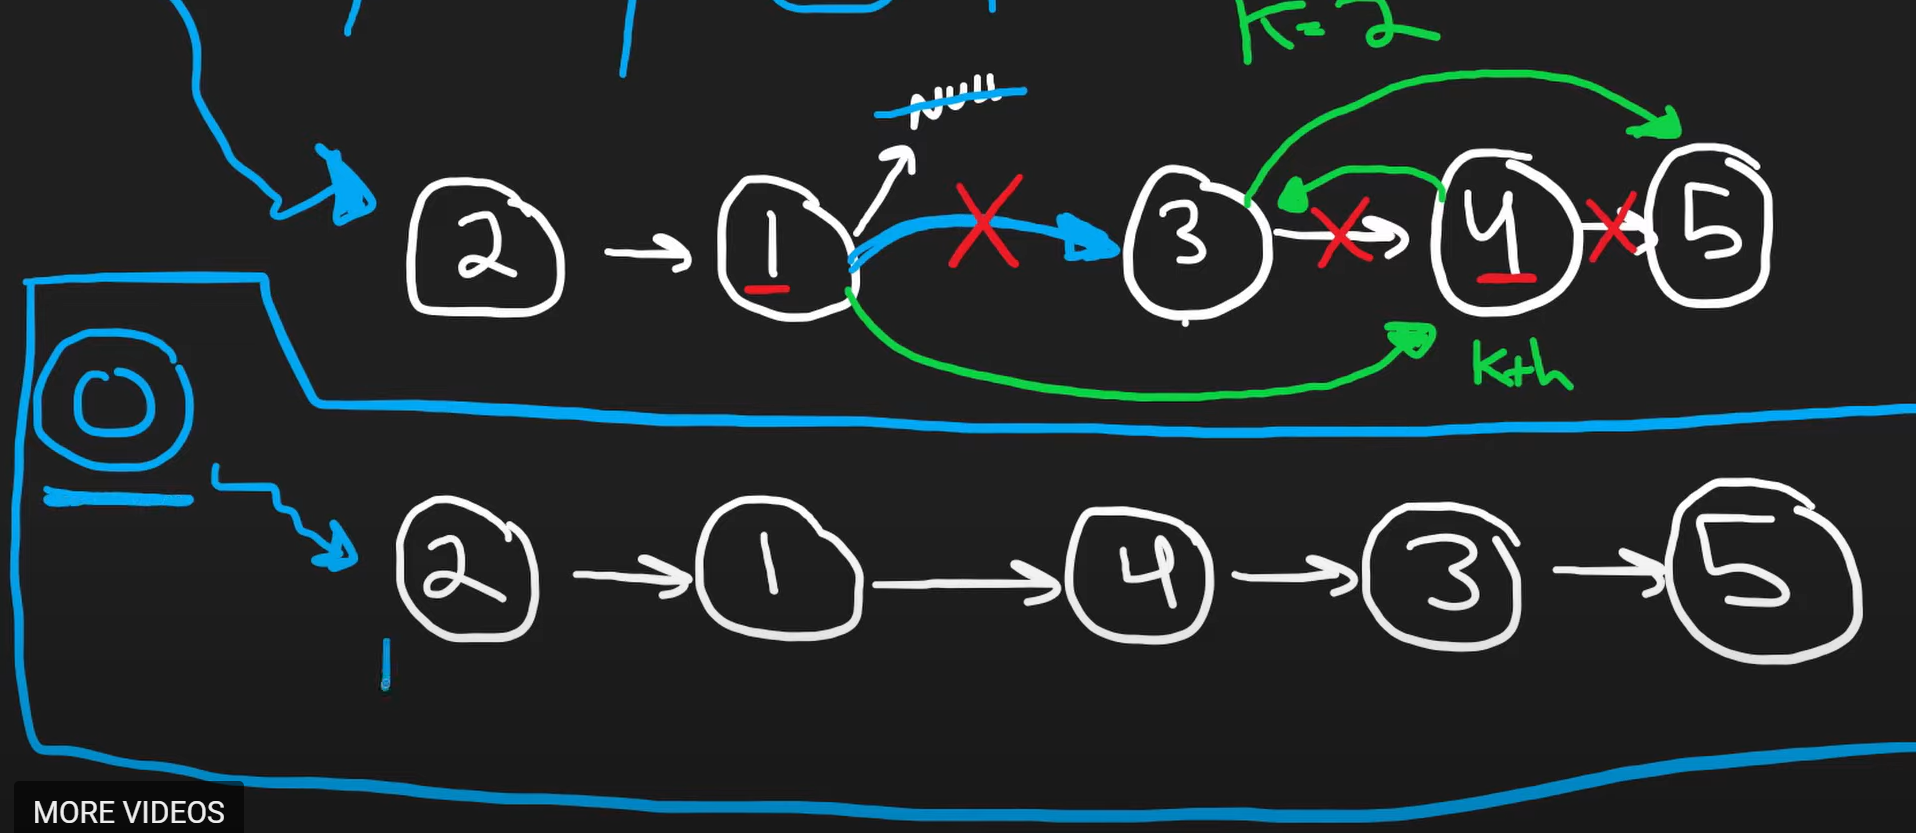 K=2
Null
2 1 3 4 5
Kth
0
2 1 4 3 5
MORE VIDEOS